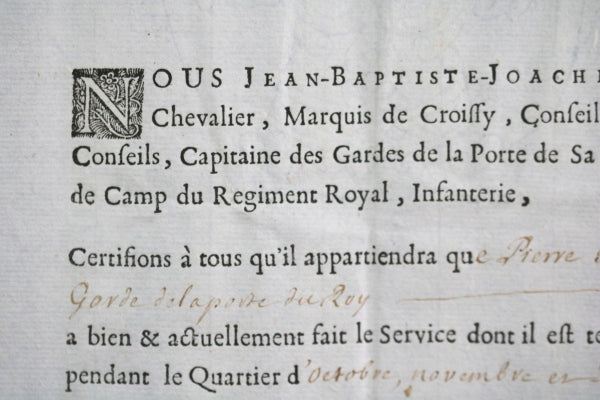 NOUS JEAN-BAPTISTE-JOACHI
Chevalier, Marquis de Croiſſy, Conſeil
Conſeils, Capitaine des Gardes de la Porte de Sa
de Camp du Regiment Royal, Infanterie,
Certifions à tous qu'il appartiendra que Pierre
Garde delaporte du Roy
a bien & actuellement fait le Service dont il est te
pendant le Quartier d'octobre, novembre et